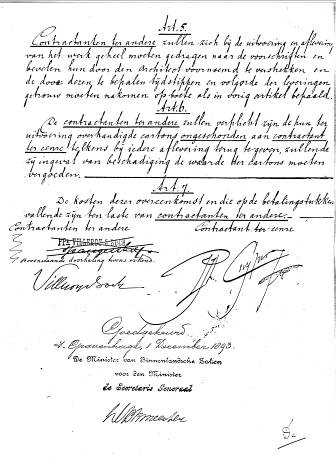 Art. 5.
Contractanten ter andere zullen zich bij de uitvoering en aflevering
van het werk geheel moeten gedragen naar de voorschriften en
bevelen hun door den Architect voornoemd te verstrekken en
de door dezen te bepalen tijdstippen en volgorde der leveringen
getrouw moeten nakomen op boete als in vorig artikel bepaald.
Art. 6.
De contractanten ter andere zullen verplicht zijn de hun ter
uitvoering overhandigde cartons ongeschonden aan contractant
ter eenre telkens bij iedere aflevering terug te geven, zullende
zij ingeval van beschadiging de waarde der cartons moeten
vergoeden.
Art. 7.
De kosten dezer overeenkomst en die op de betalingstukken
vallende zijn ten laste van contractanten ter andere.
Contractanten ter andere Contractant ter eenre
PPA VILLEROY & BOCH
Bovenstaande doorhaling tevens erkend.
Villeroy & Boch
P.J.H. Cuypers
Goedgekeurd
's Gravenhage, 1 December 1893.
De Minister van Binnenlandsche Zaken
voor den Minister
De Secretaris Generaal
De